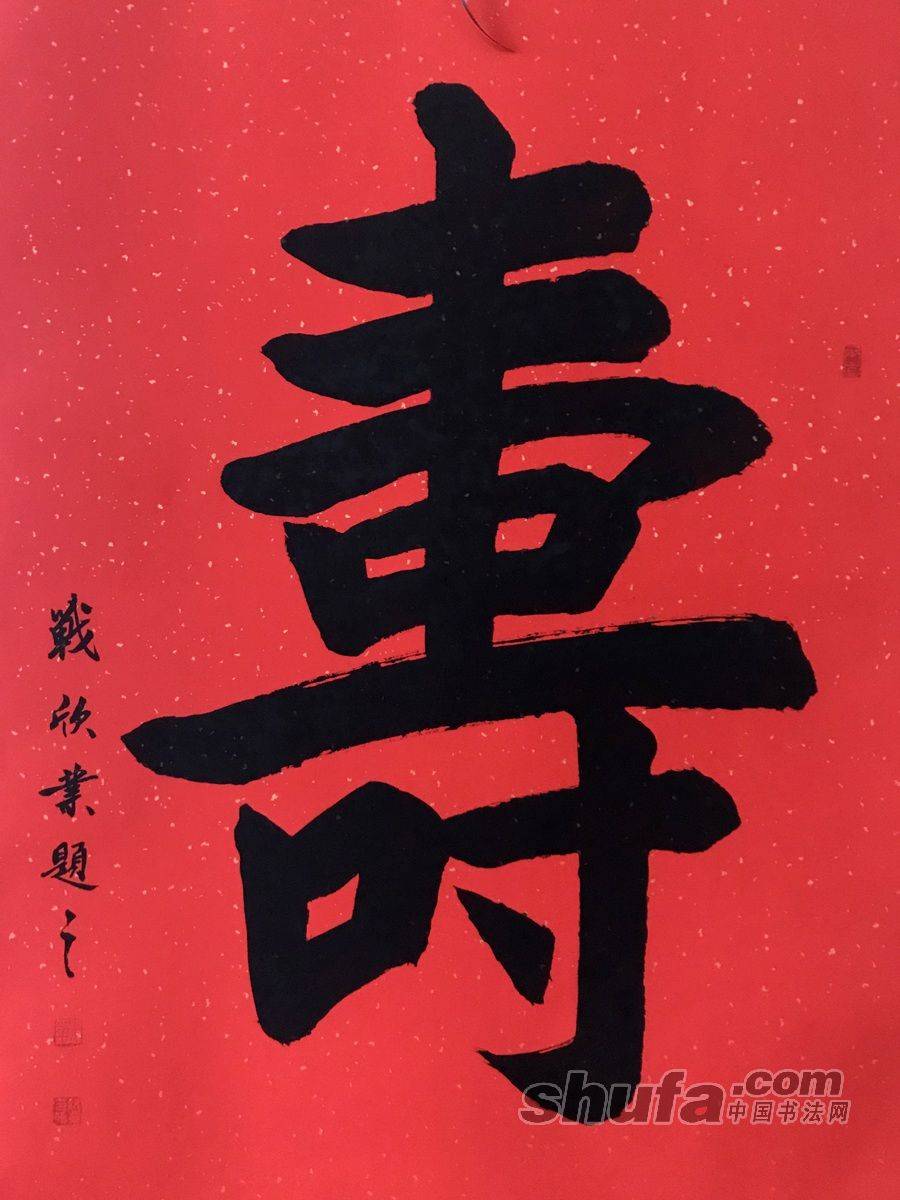 壽
戰欣業題之
shufa.com
中国书法网